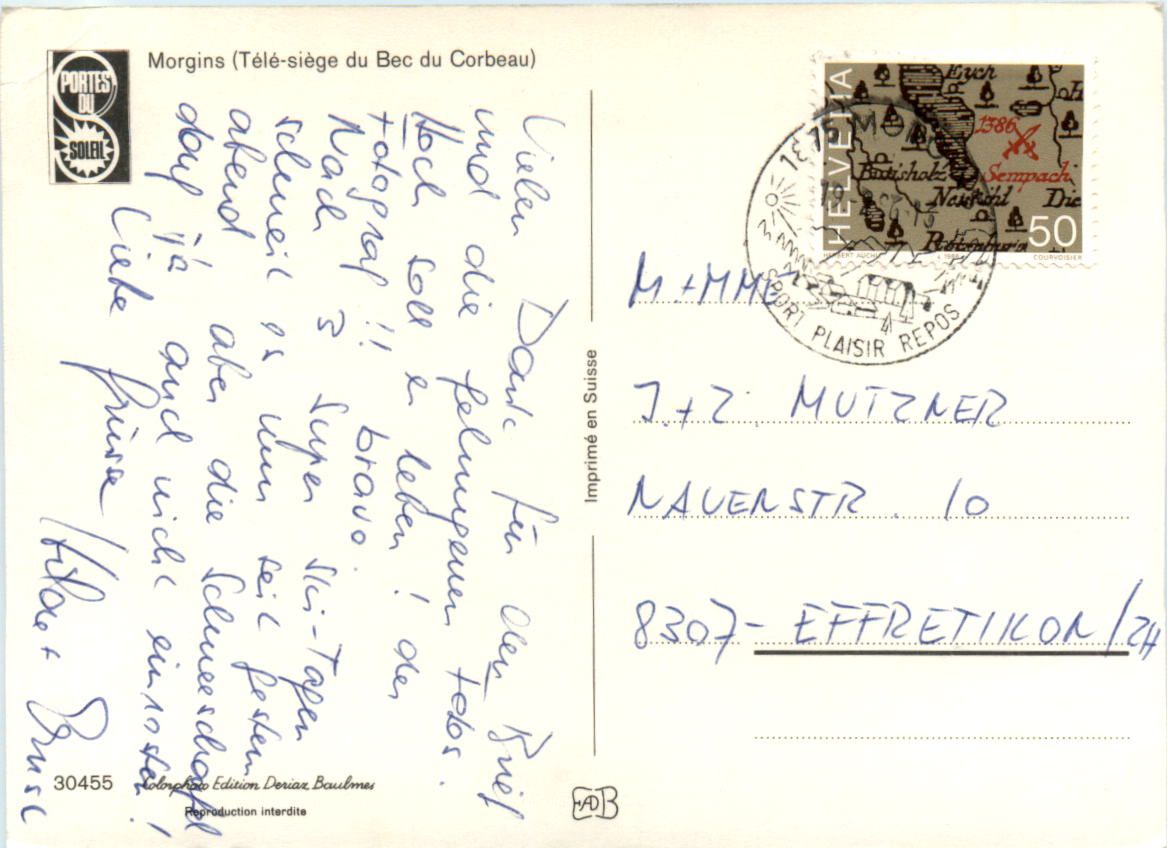 PORTES
DU
SOLEIL
Morgins (Télé-siège du Bec du Corbeau)
Vielen Dank für den Brief
und die gelungenen Fotos.
Hoch soll er leben! der
Fotograf!! bravo.
Nach 3 super Ski-Tagen
schneit es nun seit gestern
abend aber die Schneeschaufel
darf ja auch nicht einrosten!
Liebe Grüsse
30455
Colorphoto Edition Deriaz, Baulmes
Reproduction interdite
Imprimé en Suisse
EADB
HELVETIA
Eych
1386
Sempach
Butisholz
Die
50
HERBERT AUCHLI
COURVOISIER
SPORT PLAISIR REPOS
M + MME
J. + Z. MUTZNER
NAUENSTR. 10
8307 - EFFRETIKON / ZH